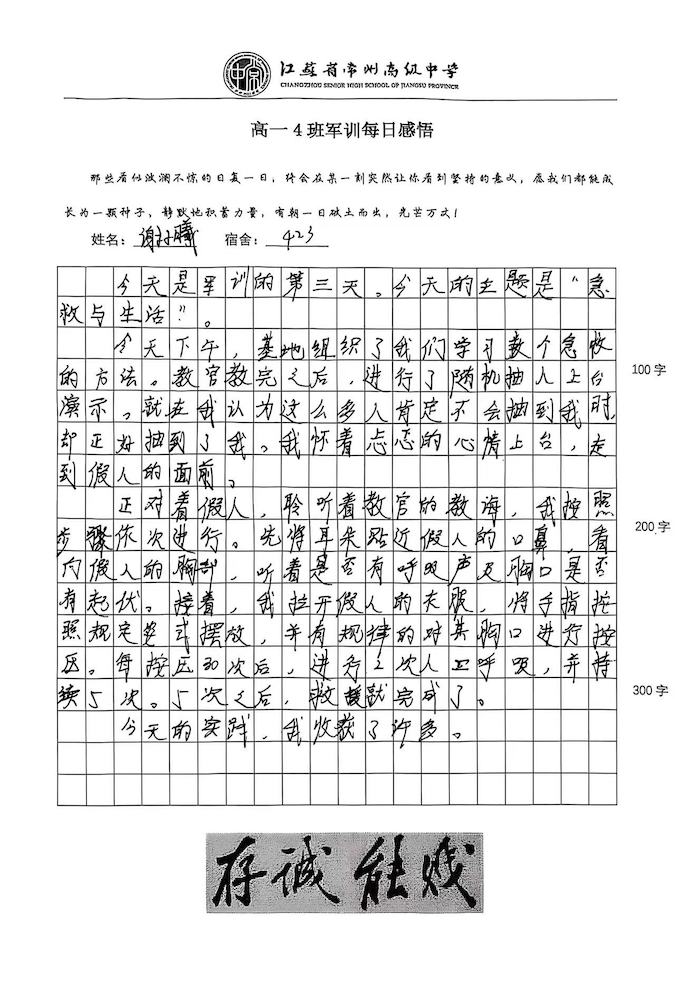 江苏省常州高级中学
CHANGZHOU SENIOR HIGH SCHOOL OF JIANGSU PROVINCE
高一 4 班军训每日感悟
那些看似波澜不惊的日复一日，终会在某一刻突然让你看到坚持的意义，愿我们都能成
长为一颗种子，静默地积蓄力量，有朝一日破土而出，光芒万丈！
姓名：谢 曦 宿舍：423
今天是军训的第三天。今天的主题是“急
救与生活”。
今天下午，基地组织了我们学习数个急救
的方法。教官教完之后，进行了随机抽人上台
演示。就在我认为这么多人肯定不会抽到我时，
却正好抽到了我。我怀着忐忑的心情上台，走
到假人的面前。
正对着假人，聆听着教官的教诲，我按照
步骤依次进行。先将耳朵贴近假人的口鼻，看
向假人的胸部，听着是否有呼吸声及胸口是否
有起伏。接着，我拉开假人的衣服，将手指按
照规定姿式摆放，并有规律的对其胸口进行按
压。每按压30次后，进行2次人工呼吸，并持
续5次。5次之后，救援就完成了。
今天的实践，我收获了许多。
100 字
200 字
300 字
存诚能贱